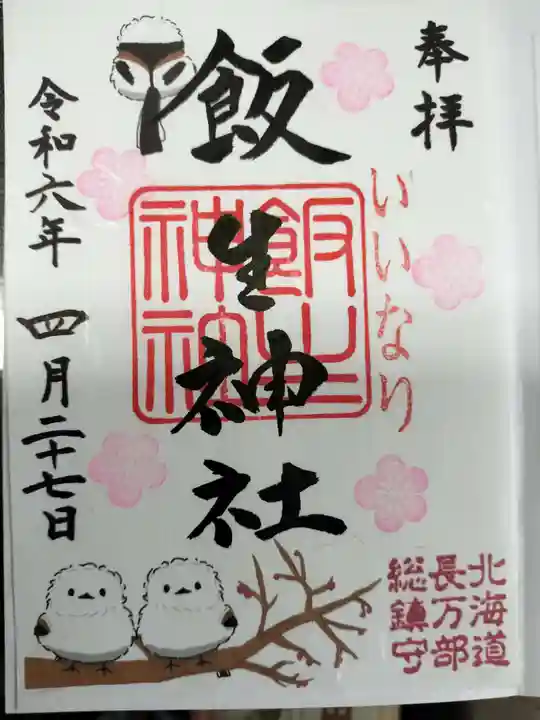 奉拝
いいなり
飯生神社
飯生神社
令和六年 四月二十七日
北海道
長万部
総鎮守